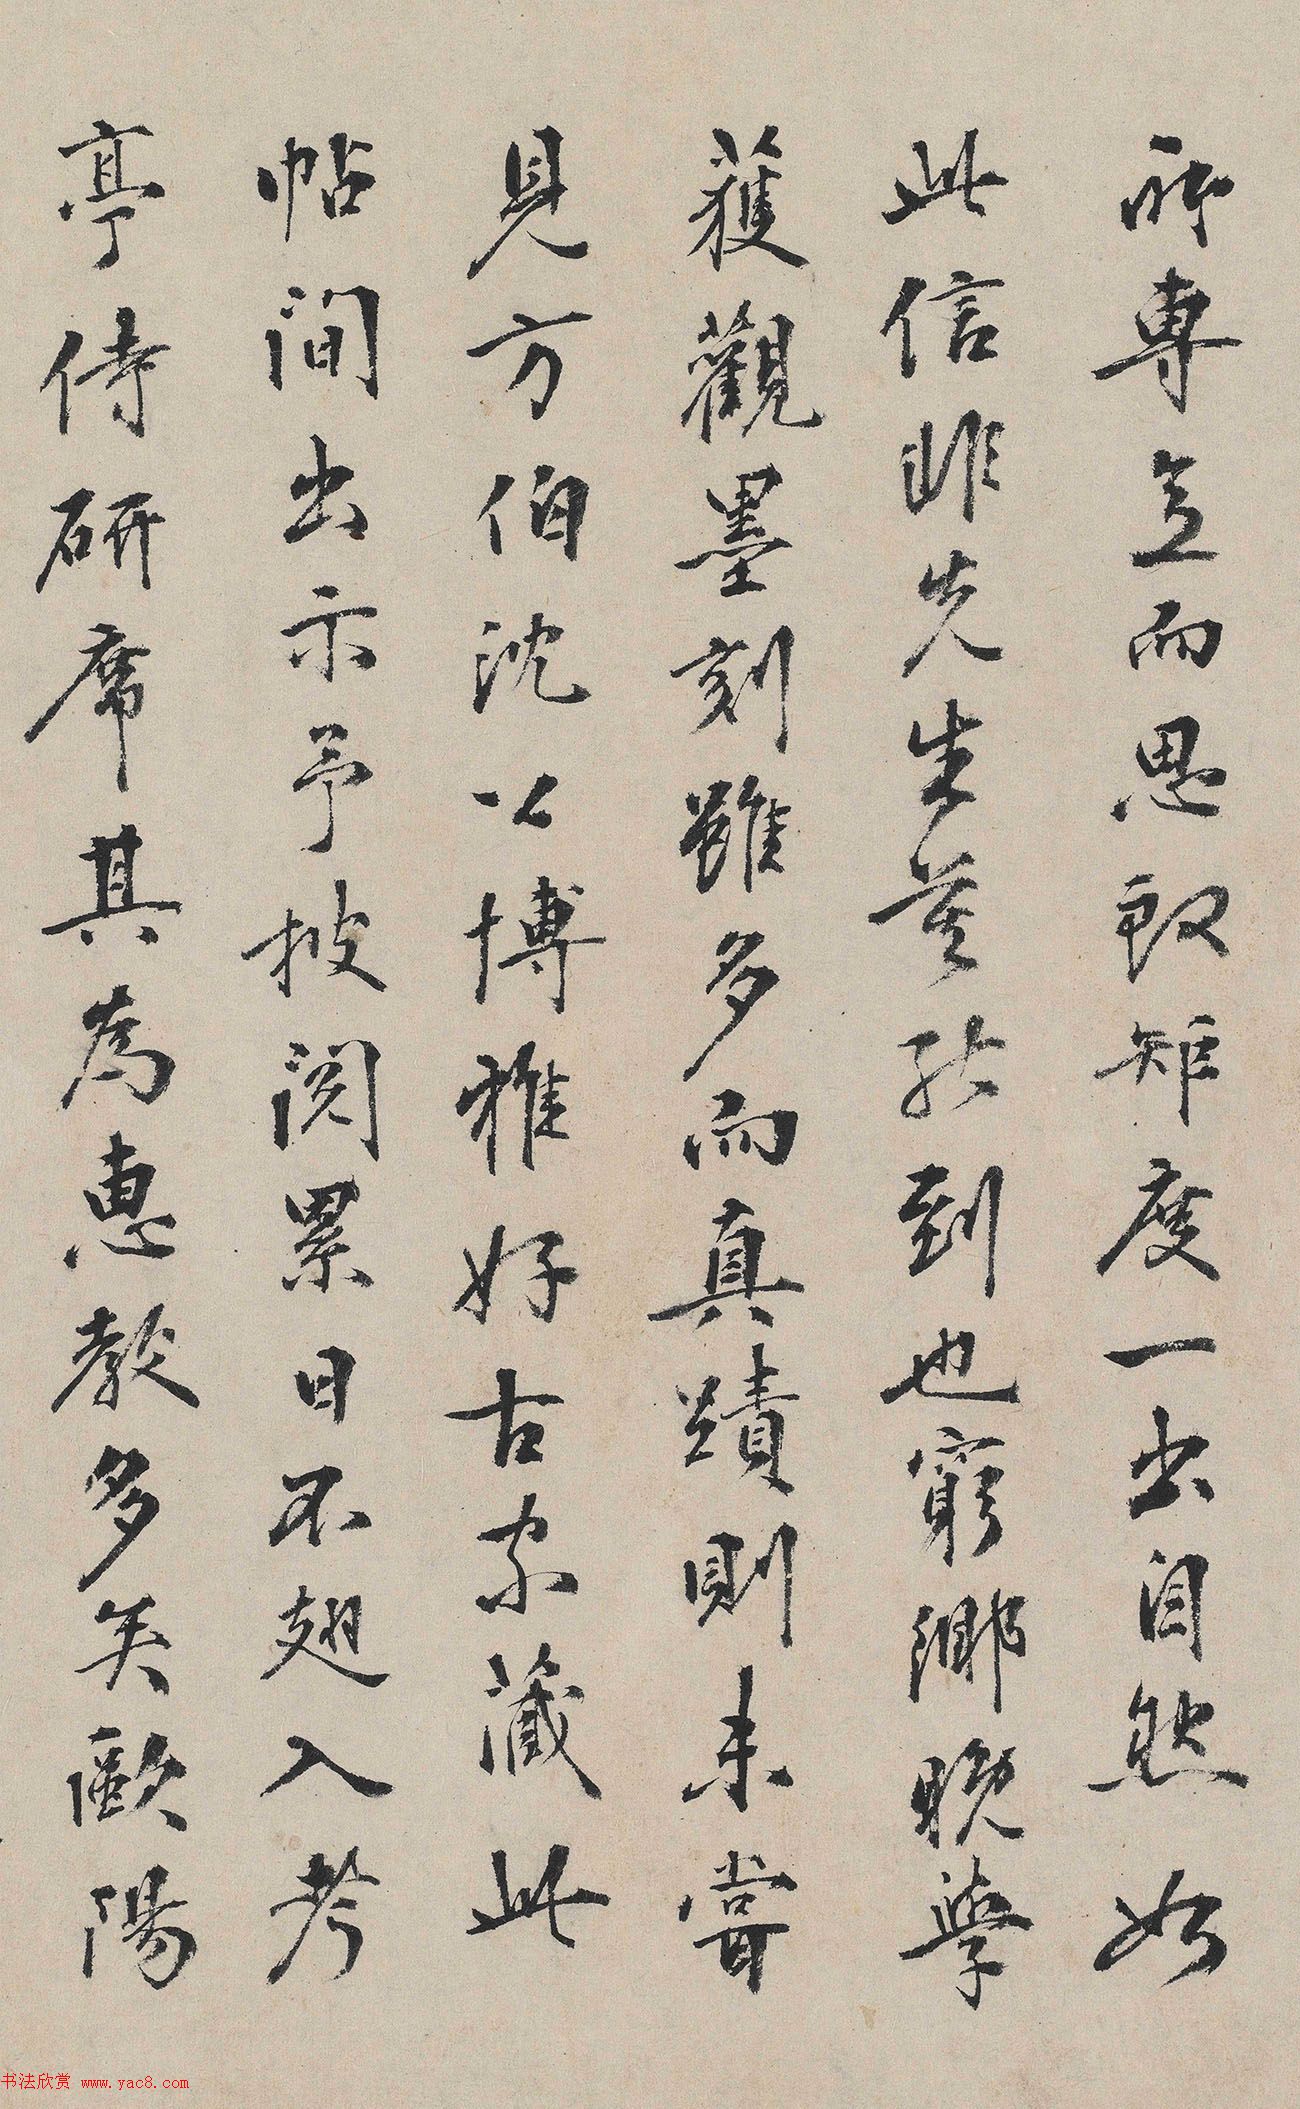 所専立而思致矩度一出自然如
此信非先生莫能到也窮鄉晚學
獲觀墨刻雖多而真蹟則未嘗
見方伯沈公博雅好古家藏此
帖間出示予披閱累日不翅入考
亭侍研席其為惠教多矣歐陽
书法欣赏 www.yac8.com